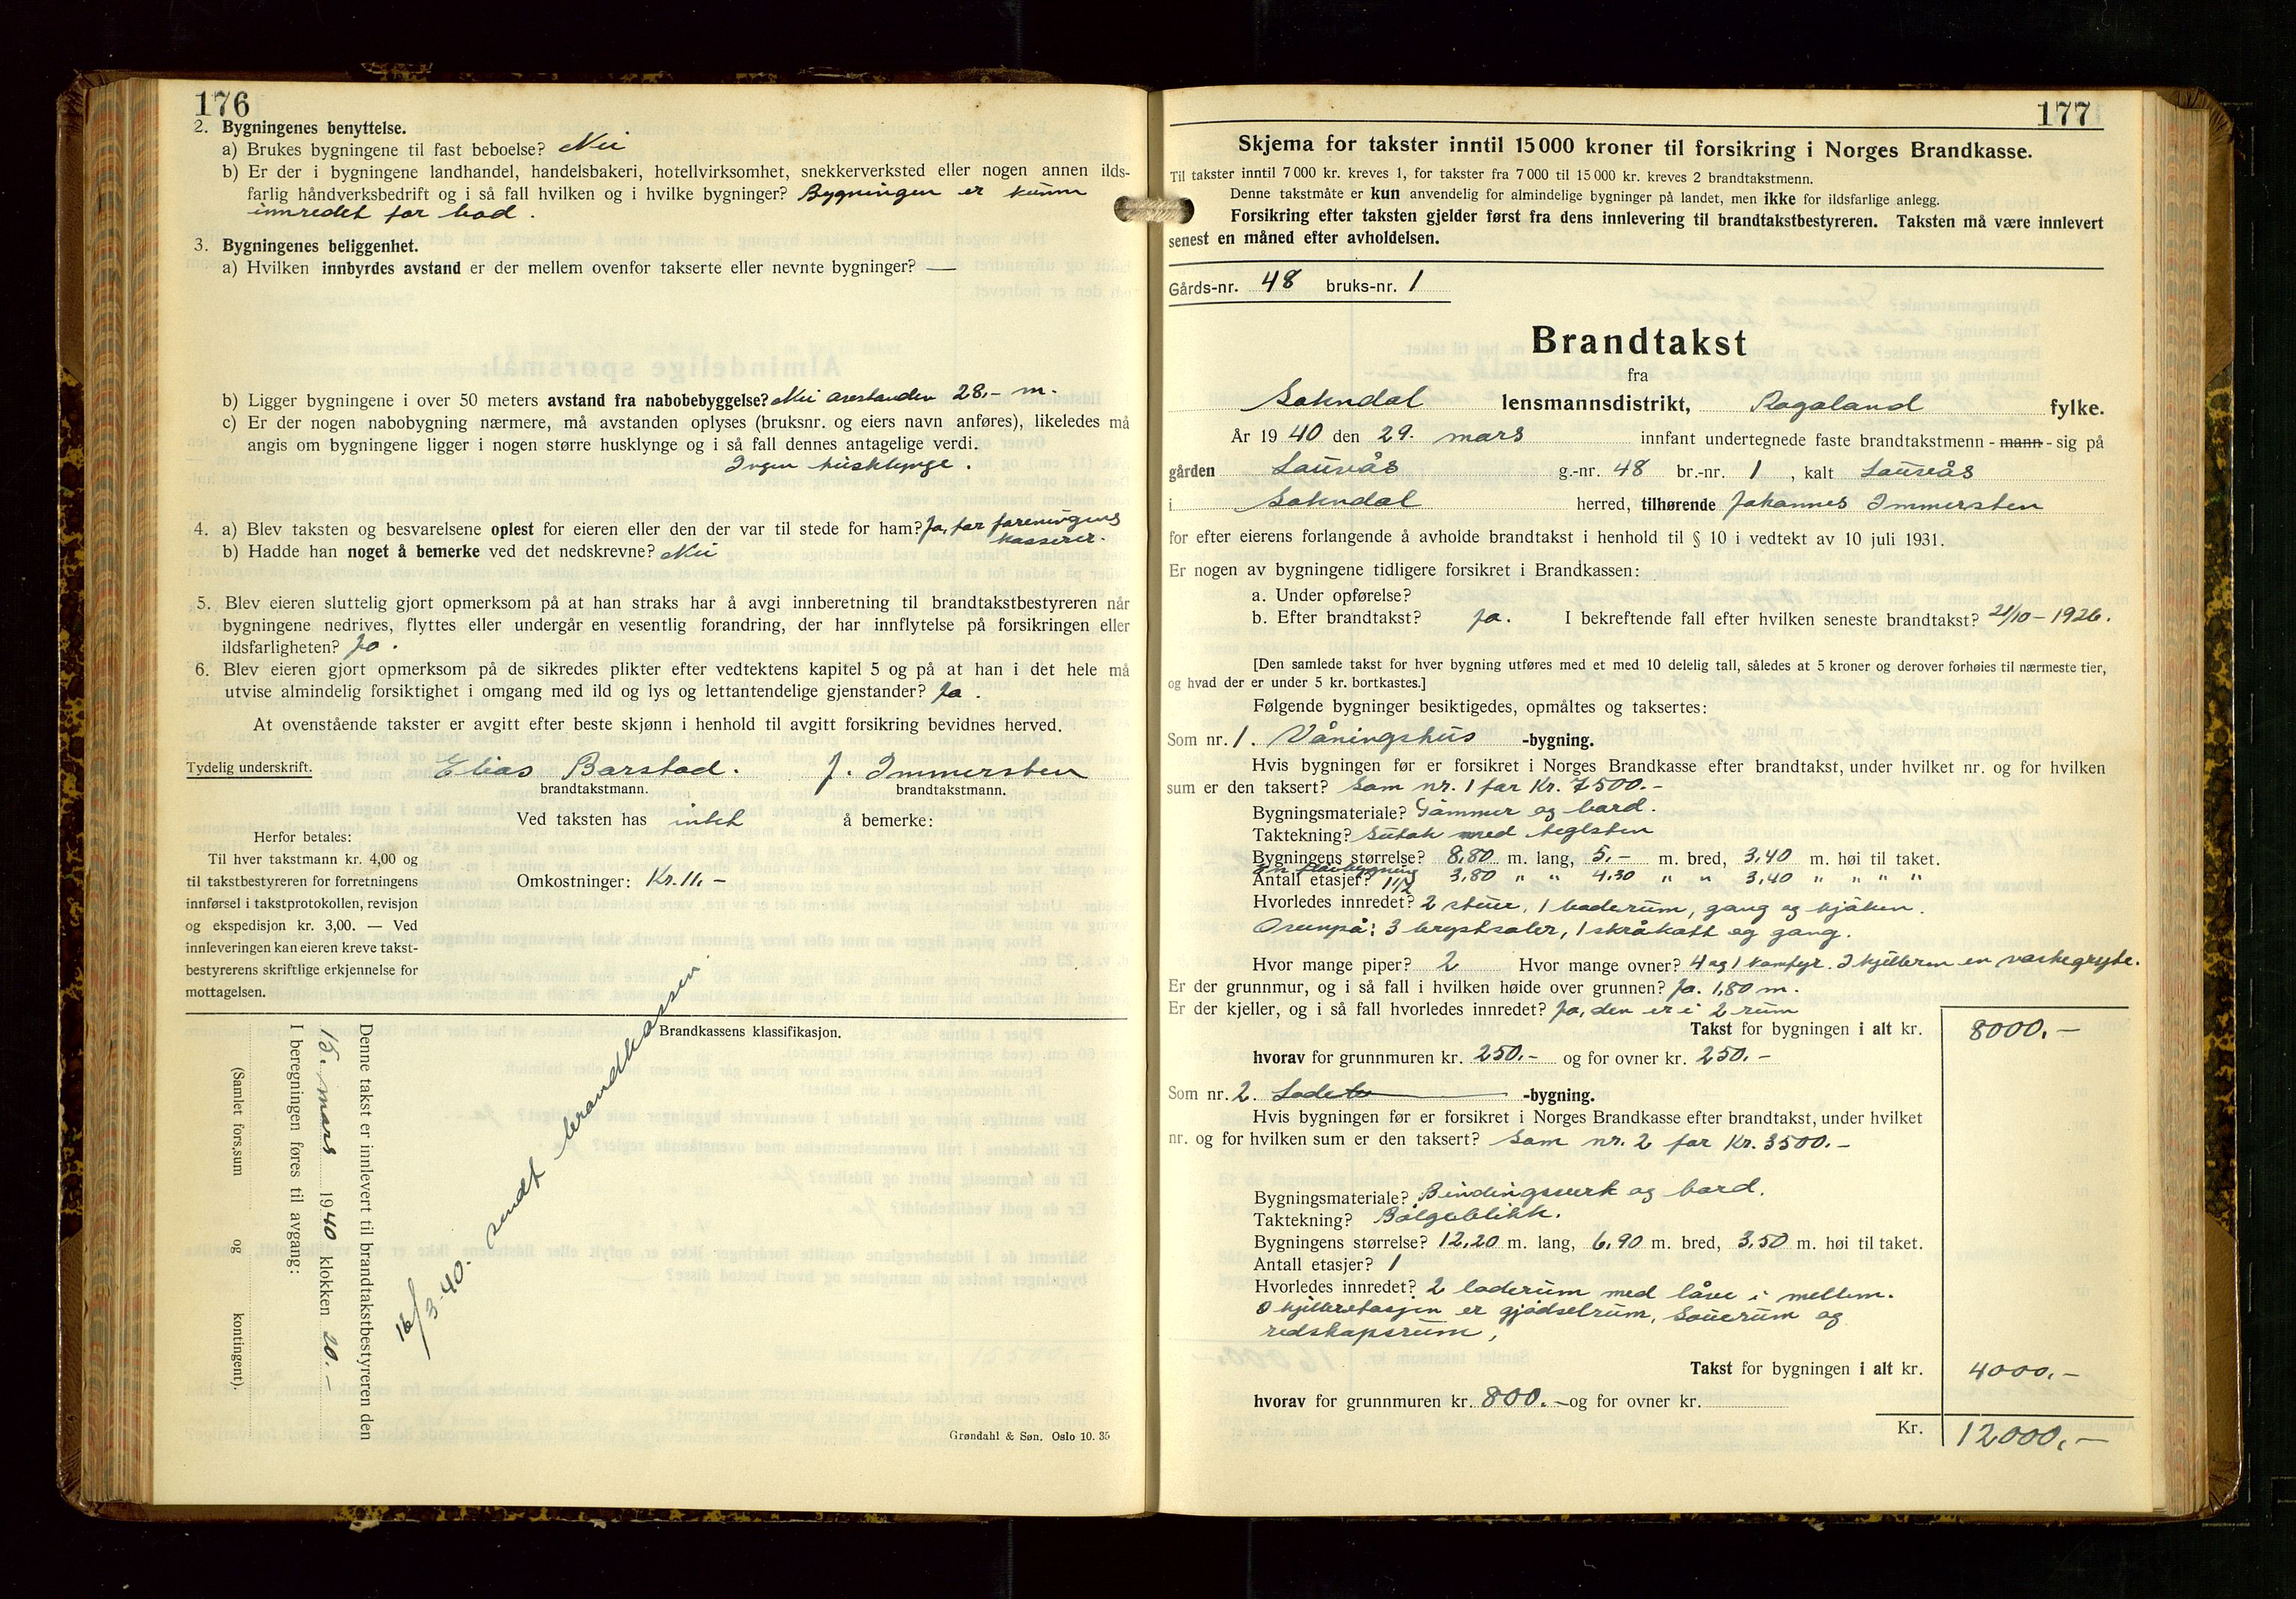 176
2. Bygningenes benyttelse.
a) Brukes bygningene til fast beboelse? Nei
b) Er der i bygningene landhandel, handelsbakeri, hotellvirksomhet, snekkerverksted eller nogen annen ilds-
farlig håndverksbedrift og i så fall hvilken og i hvilke bygninger? Bygningen er kunn
innredet for bad.
3. Bygningenes beliggenhet.
a) Hvilken innbyrdes avstand er der mellem ovenfor takserte eller nevnte bygninger? —
b) Ligger bygningene i over 50 meters avstand fra nabobebyggelse? Nei avstanden 28,- m.
c) Er der nogen nabobygning nærmere, må avstanden oplyses (bruksnr. og eiers navn anføres), likeledes må
angis om bygningene ligger i nogen større husklynge og i så fall dennes antagelige verdi.
Ingen husklynge.
4. a) Blev taksten og besvarelsene oplest for eieren eller den der var til stede for ham? Ja, for foreningens
kasserer.
b) Hadde han noget å bemerke ved det nedskrevne? Nei
5. Blev eieren sluttelig gjort opmerksom på at han straks har å avgi innberetning til brandtakstbestyreren når
bygningene nedrives, flyttes eller undergår en vesentlig forandring, der har innflytelse på forsikringen eller
ildsfarligheten? Ja.
6. Blev eieren gjort opmerksom på de sikredes plikter efter vedtektens kapitel 5 og på at han i det hele må
utvise almindelig forsiktighet i omgang med ild og lys og lettantendelige gjenstander? Ja.
At ovenstående takster er avgitt efter beste skjønn i henhold til avgitt forsikring bevidnes herved.
Tydelig underskrift. Elias Barstad. J. Immersten
brandtakstmann. brandtakstmann.
Ved taksten has intet å bemerke:
Herfor betales:
Til hver takstmann kr. 4,00 og
til takstbestyreren for forretningens
innførsel i takstprotokollen, revisjon
og ekspedisjon kr. 3,00. — Ved
innleveringen kan eieren kreve takst-
bestyrerens skriftlige erkjennelse for
mottagelsen.
Omkostninger: Kr. 11,-
Brandkassens klassifikasjon.
Denne takst er innlevert til brandtakstbestyreren den
15. mars 1940 klokken 20.-
I beregningen føres til avgang:
(Samlet fors.sum og kontingent).
16/3-40. sendt brandkassen
Grøndahl & Søn. Oslo 10. 35
177
Skjema for takster inntil 15 000 kroner til forsikring i Norges Brandkasse.
Til takster inntil 7 000 kr. kreves 1, for takster fra 7 000 til 15 000 kr. kreves 2 brandtakstmenn.
Denne takstmåte er kun anvendelig for almindelige bygninger på landet, men ikke for ildsfarlige anlegg.
Forsikring efter taksten gjelder først fra dens innlevering til brandtakstbestyreren. Taksten må være innlevert
senest en måned efter avholdelsen.
Gårds-nr. 48 bruks-nr. 1
Brandtakst
fra
Sokndal lensmannsdistrikt, Rogaland fylke.
År 1940 den 29. mars innfant undertegnede faste brandtakstmenn - mann - sig på
gården Lauvås g.-nr. 48 br.-nr. 1, kalt Lauvås
i Sokndal herred, tilhørende Johannes Immersten
for efter eierens forlangende å avholde brandtakst i henhold til § 10 i vedtekt av 10 juli 1931.
Er nogen av bygningene tidligere forsikret i Brandkassen:
a. Under opførelse?
b. Efter brandtakst? Ja. I bekreftende fall efter hvilken seneste brandtakst? 21/10 - 1926.
[Den samlede takst for hver bygning utføres med et med 10 delelig tall, således at 5 kroner og derover forhøies til nærmeste tier,
og hvad der er under 5 kr. bortkastes.]
Følgende bygninger besiktigedes, opmåltes og taksertes:
Som nr. 1. Våningshus -bygning.
Hvis bygningen før er forsikret i Norges Brandkasse efter brandtakst, under hvilket nr. og for hvilken
sum er den taksert? Som nr. 1 for Kr. 7500.-
Bygningsmateriale? Tømmer og bord.
Taktekning? Sutak med teglsten
Bygningens størrelse? 8,80 m. lang, 5,- m. bred, 3,40 m. høi til taket.
3,80 " " 4,30 " " 3,40 " " " "
Antall etasjer? 1 1/2
Hvorledes innredet? 2 stuer, 1 baderum, gang og kjøken.
Ovenpå: 3 brystsaler, 1 skråkott og gang.
Hvor mange piper? 2 Hvor mange ovner? 4 og 1 komfyr. I kjelleren en vaskegryte.
Er der grunnmur, og i så fall i hvilken høide over grunnen? Ja. 1,80 m.
Er der kjeller, og i så fall hvorledes innredet? Ja, den er i 2 rum
Takst for bygningen i alt kr. 8000,-
hvorav for grunnmuren kr. 250.- og for ovner kr. 250.-
Som nr. 2. Lade -bygning.
Hvis bygningen før er forsikret i Norges Brandkasse efter brandtakst, under hvilket
nr. og for hvilken sum er den taksert? Som nr. 2 for Kr. 3500.-
Bygningsmateriale? Bindingsverk og bord.
Taktekning? Bølgeblikk.
Bygningens størrelse? 12,20 m. lang, 6,90 m. bred, 3,50 m. høi til taket.
Antall etasjer? 1
Hvorledes innredet? 2 laderum med låve i mellem.
I kjelleretasjen er gjødselrum, sauerum og
redskapsrum,
Takst for bygningen i alt kr. 4000,-
hvorav for grunnmuren kr. 800.- og for ovner kr.
Kr. 12000,-